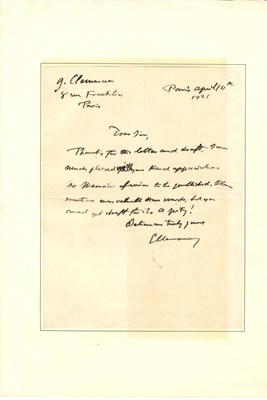 G. Clemenceau
8 rue Franklin
Paris
Paris April 10th
Dear Sir,
Thanks for the letter and draft. I am
much pleased with your kind appreciation
no Memoirs of mine to be published. Silence
sometimes more valuable than words, but you
cannot get draft for it. a pity!
truly yours
GClemenceau